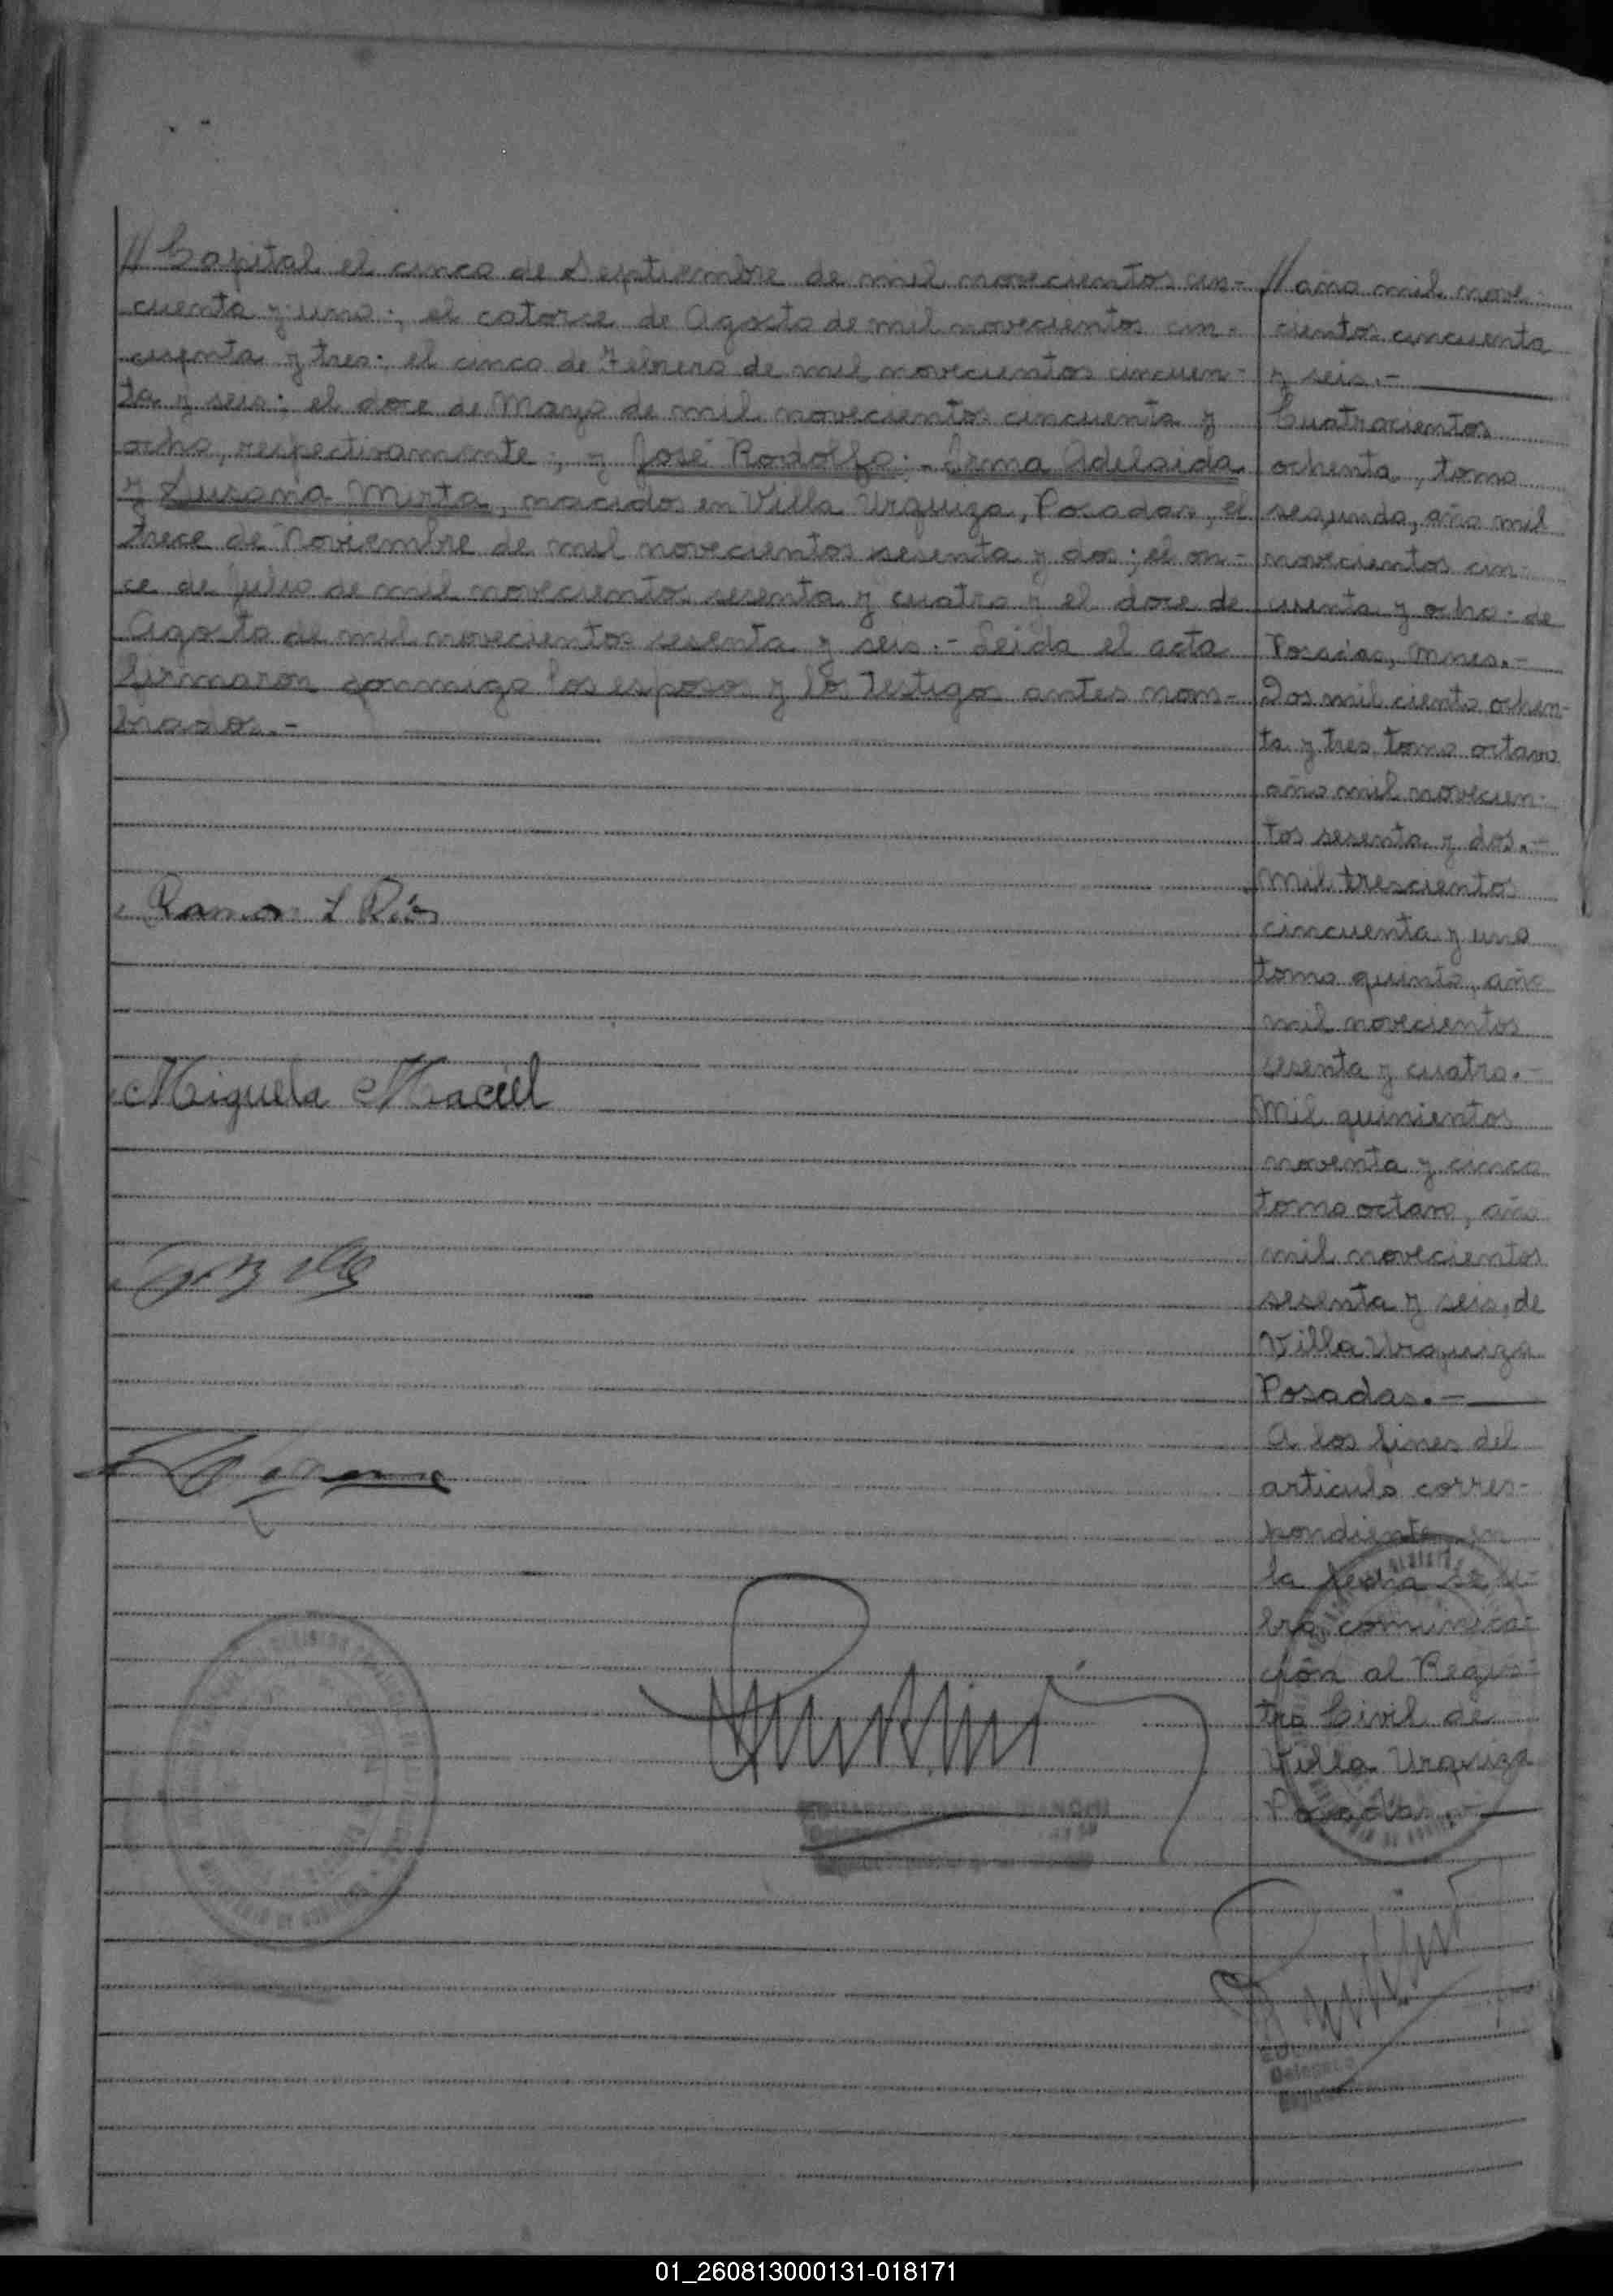 // Capital el cinco de Septiembre de mil novecientos cin-
cuenta y uno; el catorce de Agosto de mil novecientos cin-
cuenta y tres; el cinco de Febrero de mil novecientos cincuen-
ta y seis; el doce de Mayo de mil novecientos cincuenta y
ocho, respectivamente; y José Rodolfo; Irma Adelaida
y Susana Mirta, nacidos en Villa Urquiza, Posadas, el
trece de Noviembre de mil novecientos sesenta y dos; el on-
ce de Julio de mil novecientos sesenta y cuatro y el doce de
Agosto de mil novecientos sesenta y seis.- Leida el acta
firmaron conmigo los esposos y los testigos antes nom-
brados.-
Ramon L Rios
Miguela Maciel
// año mil nove-
cientos cincuenta
y seis.-
Cuatrocientos
ochenta, tomo
segundo, año mil
novecientos cin-
cuenta y ocho. de
Posadas, Mnes.-
Dos mil ciento ochen-
ta y tres, tomo octavo
año mil novecien-
tos sesenta y dos.-
Mil trescientos
cincuenta y uno
tomo quinto, año
mil novecientos
sesenta y cuatro.-
Mil quinientos
noventa y cinco
tomo octavo, año
mil novecientos
sesenta y seis, de
Villa Urquiza
Posadas.-
A los fines del
articulo corres-
pondiente en
la fecha se li-
bró comunica-
ción al Regis-
tro Civil de
Villa Urquiza
Posadas.-
01_260813000131-018171